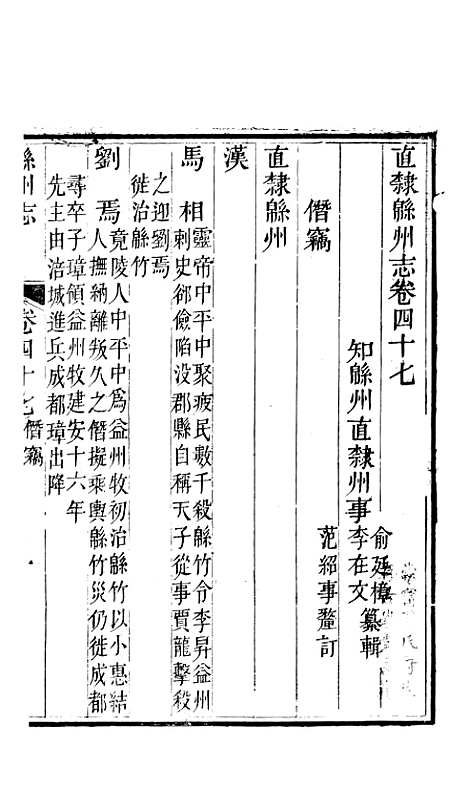 直隸緜州志卷四十七
知緜州直隸州事
俞廷樟
李在文
纂輯
范紹事釐訂
僭竊
直隸緜州
漢
馬相靈帝中平中聚疲民數千殺緜竹令李昇益州
刺史郤儉陷没郡縣自稱天子從事賈龍擊殺
之迎劉焉
徙治緜竹
劉焉竟陵人中平中爲益州牧初治緜竹以小惠結
人撫納離叛久之僭擬乘輿緜竹災仍徙成都
尋卒子璋領益州牧建安十六年
先主由涪城進兵成都璋出降
緜州志
卷四十七僭竊